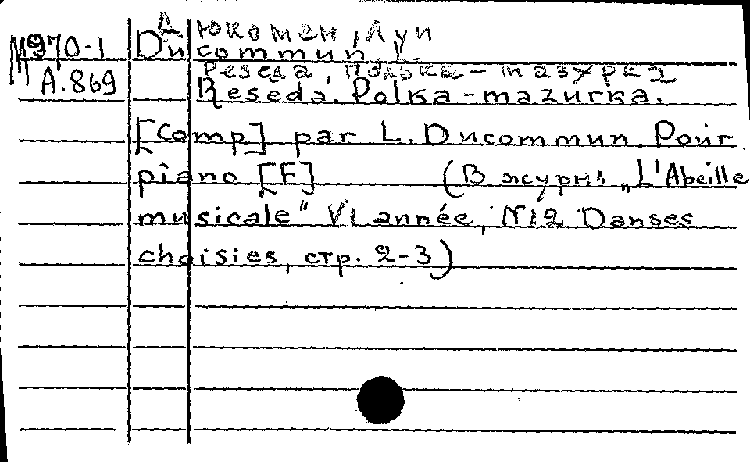 Дюкомен, Луи
М970-1 Ducommun, L.
А.869 Реседа, Полька-мазурка
Reseda. Polka-mazurka.
[Comp] par L. Ducommun. Pour
piano [F] (В журн: „L'Abeille
musicale" VI année, №12 Danses
choisies, стр. 2-3)